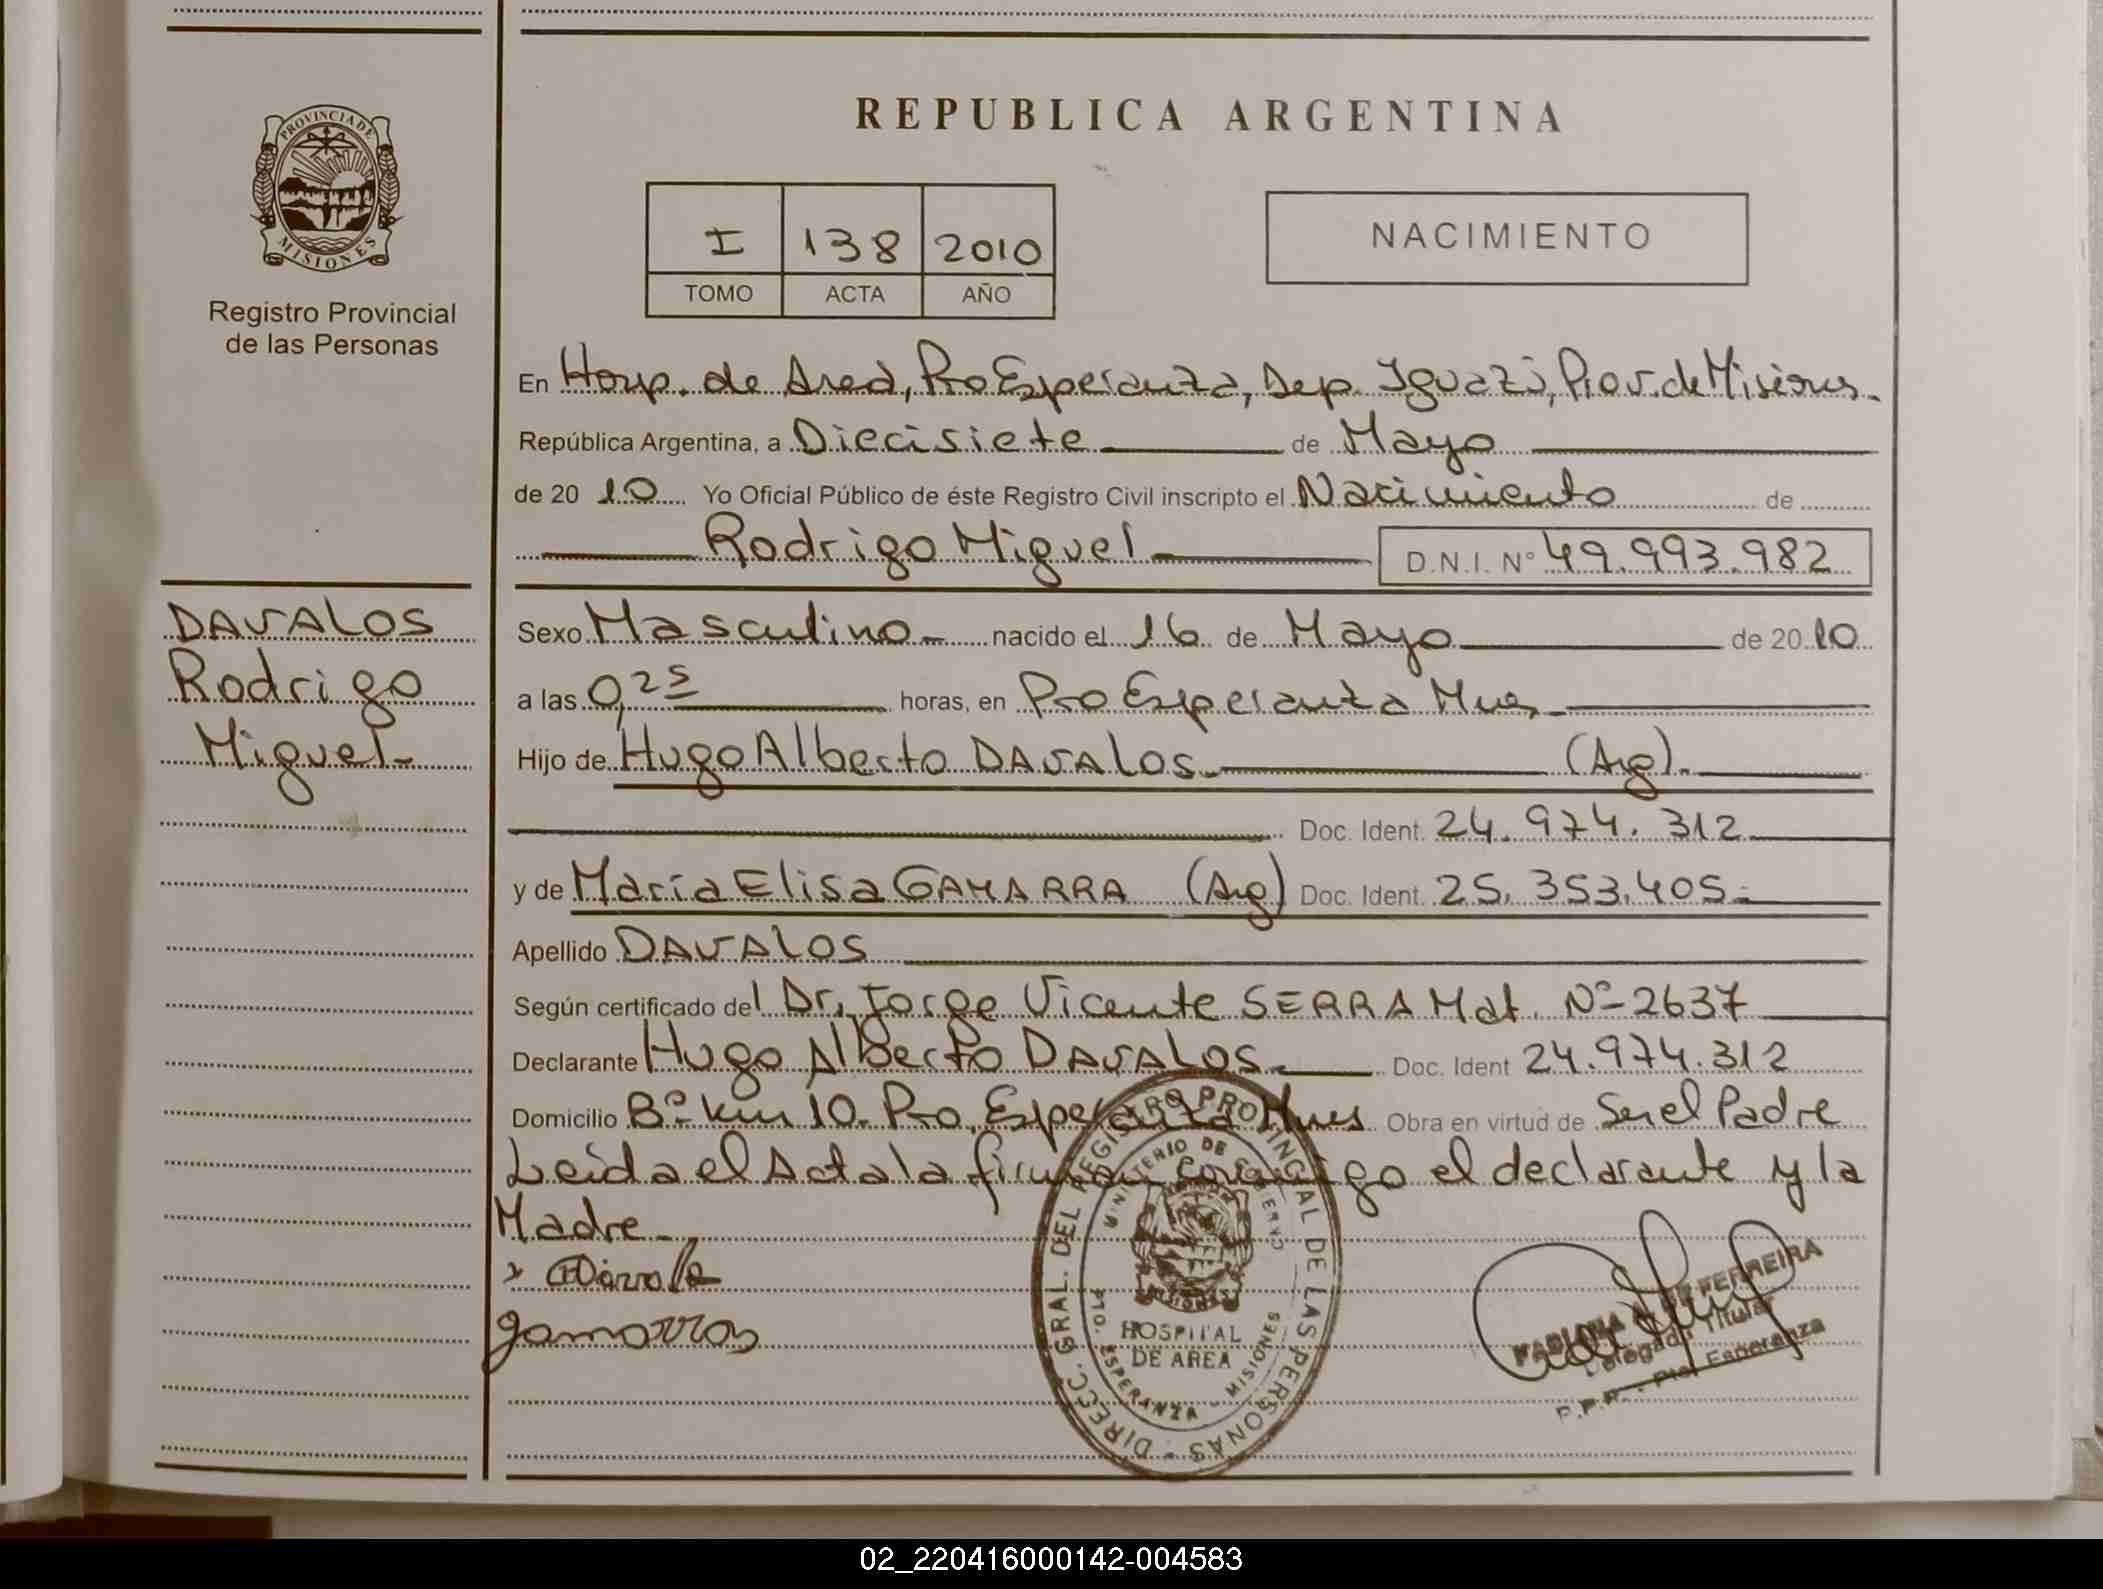 PROVINCIA DE
MISIONES
Registro Provincial
de las Personas
DAVALOS
Rodrigo
Miguel-
REPUBLICA ARGENTINA
I 138 2010
TOMO ACTA AÑO
NACIMIENTO
En Hosp. de Area, Pto Esperanza, Dep. Iguazú, Prov. de Misiones.
República Argentina, a Diecisiete de Mayo
de 2010 Yo Oficial Público de éste Registro Civil inscripto el Nacimiento de
Rodrigo Miguel D.N.I. Nº 49.993.982
Sexo Masculino- nacido el 16 de Mayo de 2010
a las 0,25 horas, en Pto Esperanza Mnes
Hijo de Hugo Alberto DAVALOS (Arg).
Doc. Ident. 24.974.312
y de María Elisa GAMARRA (Arg) Doc. Ident. 25.353.405.-
Apellido DAVALOS
Según certificado del Dr. Jorge Vicente SERRA Mat. Nº 2637
Declarante Hugo Alberto DAVALOS.- Doc. Ident 24.974.312
Domicilio Bº km 10- Pto. Esperanza Mnes Obra en virtud de Ser el Padre
Leida el Acta la firman conmigo el declarante y la
Madre.-
DIRECC. GRAL. DEL REGISTRO PROVINCIAL DE LAS PERSONAS -
MINISTERIO DE GOBIERNO
MISIONES
HOSPITAL
DE AREA
PTO. ESPERANZA - MISIONES
DE FERREIRA
Delegada Titular
R.P.P. - Pto. Esperanza
02_220416000142-004583